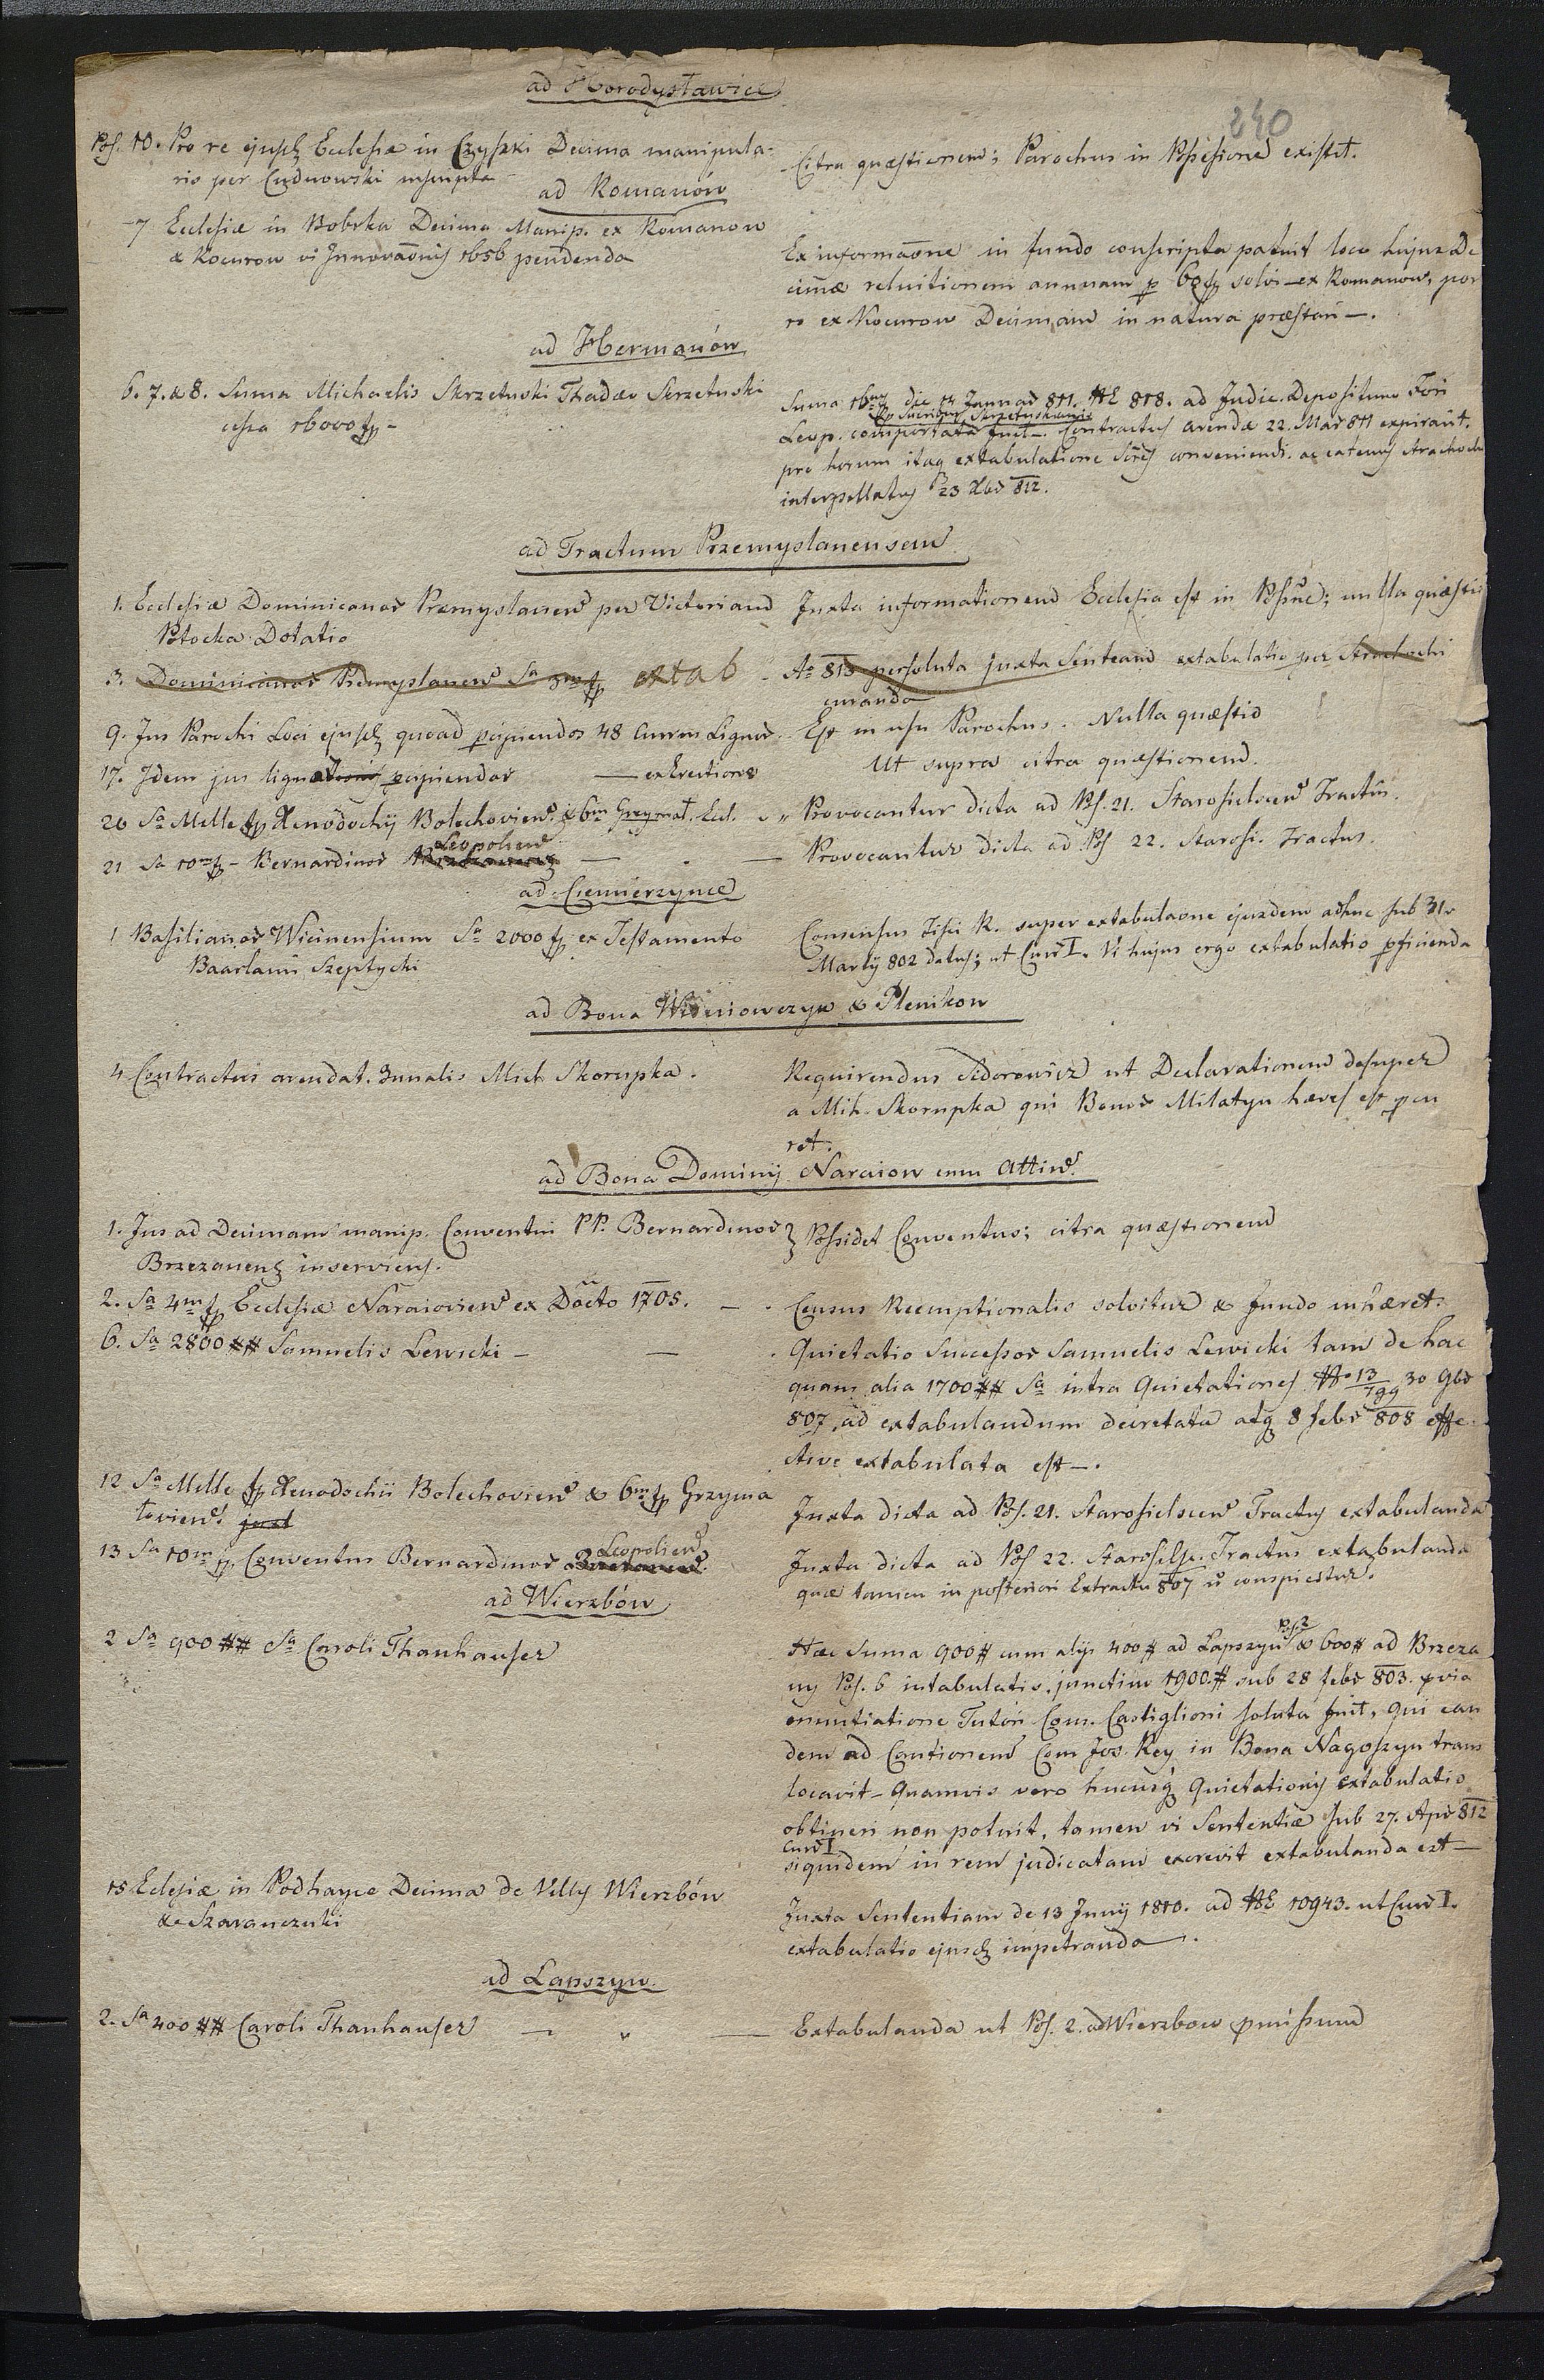 ad Horodysławice
240
Pos. 10. Pro re ejusd Ecclesiæ in Czyszki Decima manipula-
ris per Cudnowski inscripta
Citra quæstionem; Parochus in Possessione existit.
ad Romanów
7 Ecclesiæ in Bobrka Decima Manip. ex Romanow
& Kocurow vi Innovaonis 1656 pendenda
Ex informaone in fundo conscripta patuit loco hujus De
cimæ reluitionem annuam p 60 fp solvi – ex Romanow, por
ro ex Kocurow Decimam in natura præstari –.
ad Hermanów
6. 7. & 8. Suma Michaelis Skrzetuski Thadæo Skrzetuski
cessa 16000 fp –
Suma 16m die 14 Januar 811. NE 818. ad Judic. Depositum Fori
Leop. comportata fuit –. Contractus arendæ 22. Mar 811 expirant.
pro horum itaq extabulatione conveniendi. ac eatenus Strachocki
interpellatus 23 Xbr 812.
ad Tractum Przemyslanensem
1. Ecclesiæ Dominicanor Præmyslanen per Victoriam
Potocka Dotatio
Juxta informationem Ecclesia est in Possne; nulla quæstio
3. Dominicanor Præmyslanen Sa 3m fp extab
Ao 818 persoluta juxta Senteam extabulatio per Strachocki
curanda
9. Jus Parochi Loci ejusd quoad pcipiendos 48 Currus Lignor
Est in usu Parochus. Nulla quæstio
17. Idem jus pcipiendar — ex Erectione
Ut supra citra quæstionem.
20 Sa Mille fp Xenodochij Bolechovien. & 6m Grzymał. Eccl.
Provocantur dicta ad Pos. 21. Starosielscen Tractus.
21 Sa 10m fp – Bernardinor Leopolien — . —
Provocantur dicta ad Pos 22. Starosi. Tractus.
ad Ciemierzynce
1 Basilianor Wicinensium Sa 2000 fp ex Testamento
Baarlami Szeptycki
Consensus Fisci R. super extabulaone ejusdem adhuc sub 31
Martij 802 datus; ut Cur I. Vi hujus ergo extabulatio pficienda
ad Bona Wisniowczyk & Plenikow
4 Contractus arendat. 3nnalis Mich Skorupka.
Requirendus Sidorowicz ut Declarationem desuper
a Mih. Skorupka qui Bonor Milatyn hæres est procu
ret.
ad Bona Dominij Naraiow cum Attin.
1. Jus ad Decimam manip. Conventui PP. Bernardinor
Brzezanens inserviens.
Possidet Conventus; citra quæstionem
2. Sa 4m fp Ecclesiæ Naraiovien ex Docto 1705. — .
Census Reemptionalis solvitur & fundo inhæret.
6. Sa 2800 ## Samuelis Lewicki – —
Quietatio Successor Samuelis Lewicki tam de hac
quam alia 1700 ## Sa intra Quietationes No 13/789 30 9br
807, ad extabulandum decretata atq 8 febr 808 effe-
ctive extabulata est –.
12 Sa Mille fp Xenodochii Bolechovien & 6m fp Grzyma
łovien.
Juxta dicta ad Pos. 21. Starosielscen Tractus extabulanda
13 Sa 10m fp. Conventus Bernardinor Leopolien
Juxta dicta ad Pos 22. Starosielsc. Tractus extabulanda
quæ tamen in posteriori Extractu 807 ñ conspicitur.
ad Wierzbów
2 Sa 900 ## Sa Caroli Thanhauser
Hæc Suma 900 # cum alijs 400 # ad Lapszyn Pos. 2 & 600 # ad Brzeza
ny Pos. 6 intabulatis, junctim 1900. # sub 28 febr 803. prvia
enuntiatione Tutori Com. Castiglioni soluta fuit, qui ean
dem ad Cautionem Com Jos. Rey in Bona Nagoszyn trans
locavit – Quamvis vero hucusq Quietationis extabulatio
obtineri non potuit, tamen vi Sententiæ sub 27. Apr 812
Cur I
siquidem in rem judicatam excrevit extabulanda est –
15 Eclesiæ in Podhayce Decima de Villis Wierzbów
& Szaranczuki
Juxta Sententiam de 13 Junij 1810. ad NE 10943. ut Cur I.
extabulatio ejusd impetranda.
ad Lapszyn
2. Sa 400 ## Caroli Thanhauser — " —
Extabulanda ut Pos. 2. ad Wierzbow pmissum